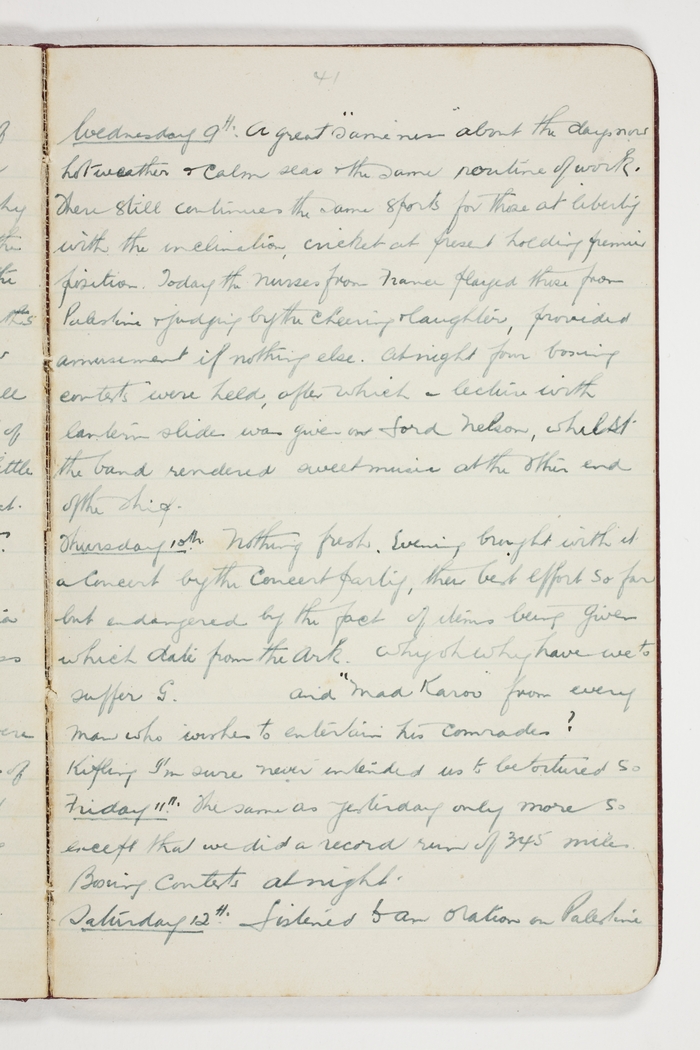 41
Wednesday 9th. A great "sameness" about the days now
hot weather & calm seas & the same routine of work.
There still continues the same sports for those at liberty
with the inclination, cricket at present holding premier
position. Today the nurses from France played those from
Palestine & judging by the cheering & laughter, provided
amusement if nothing else. At night four boxing
contests were held, after which a lecture with
lantern slides was given on Lord Nelson, whilst
the band rendered sweet music at the other end
of the ship.
Thursday 10th Nothing fresh. Evening brought with it
a Concert by the Concert party, their best effort so far
but endangered by the fact of items being given
which date from the Ark. Why oh why have we to
suffer G. and "Mad Karoo" from every
man who wishes to entertain his comrades?
Kipling I'm sure never intended us to be tortured so
Friday 11th. The same as yesterday only more so
except that we did a record run of 345 miles.
Boxing Contests at night.
Saturday 12th. Listened to an oration on Palestine